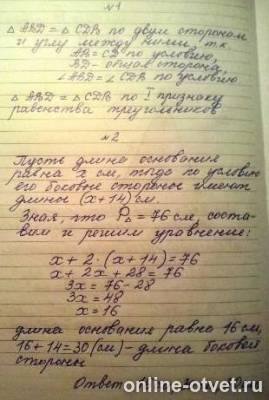 №1
△ ABD = △ CDB по двум сторонам
и углу между ними, т.к.
AB = CD по условию,
BD - общая сторона,
∠ ABD = ∠ CDB по условию
△ ABD = △ CDB по I признаку
равенства треугольников
№2
Пусть длина основания
равна x см, тогда по условию
его боковые стороны имеют
длины (x+14) см.
Зная, что P△ = 76 см, соста-
вим и решим уравнение:
x + 2 · (x+14) = 76
x + 2x + 28 = 76
3x = 76 - 28
3x = 48
x = 16
длина основания равна 16 см,
16 + 14 = 30 (см) - длина боковой
стороны
Ответ
online-otvet.ru